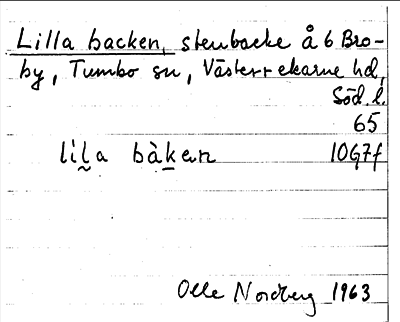 Lilla backen, stenbacke å 6 Bro-
by, Tumbo sn, Västerrekarne hd,
Söd. l.
65
lil̰a bàḵen 10G7f
Olle Nordberg 1963